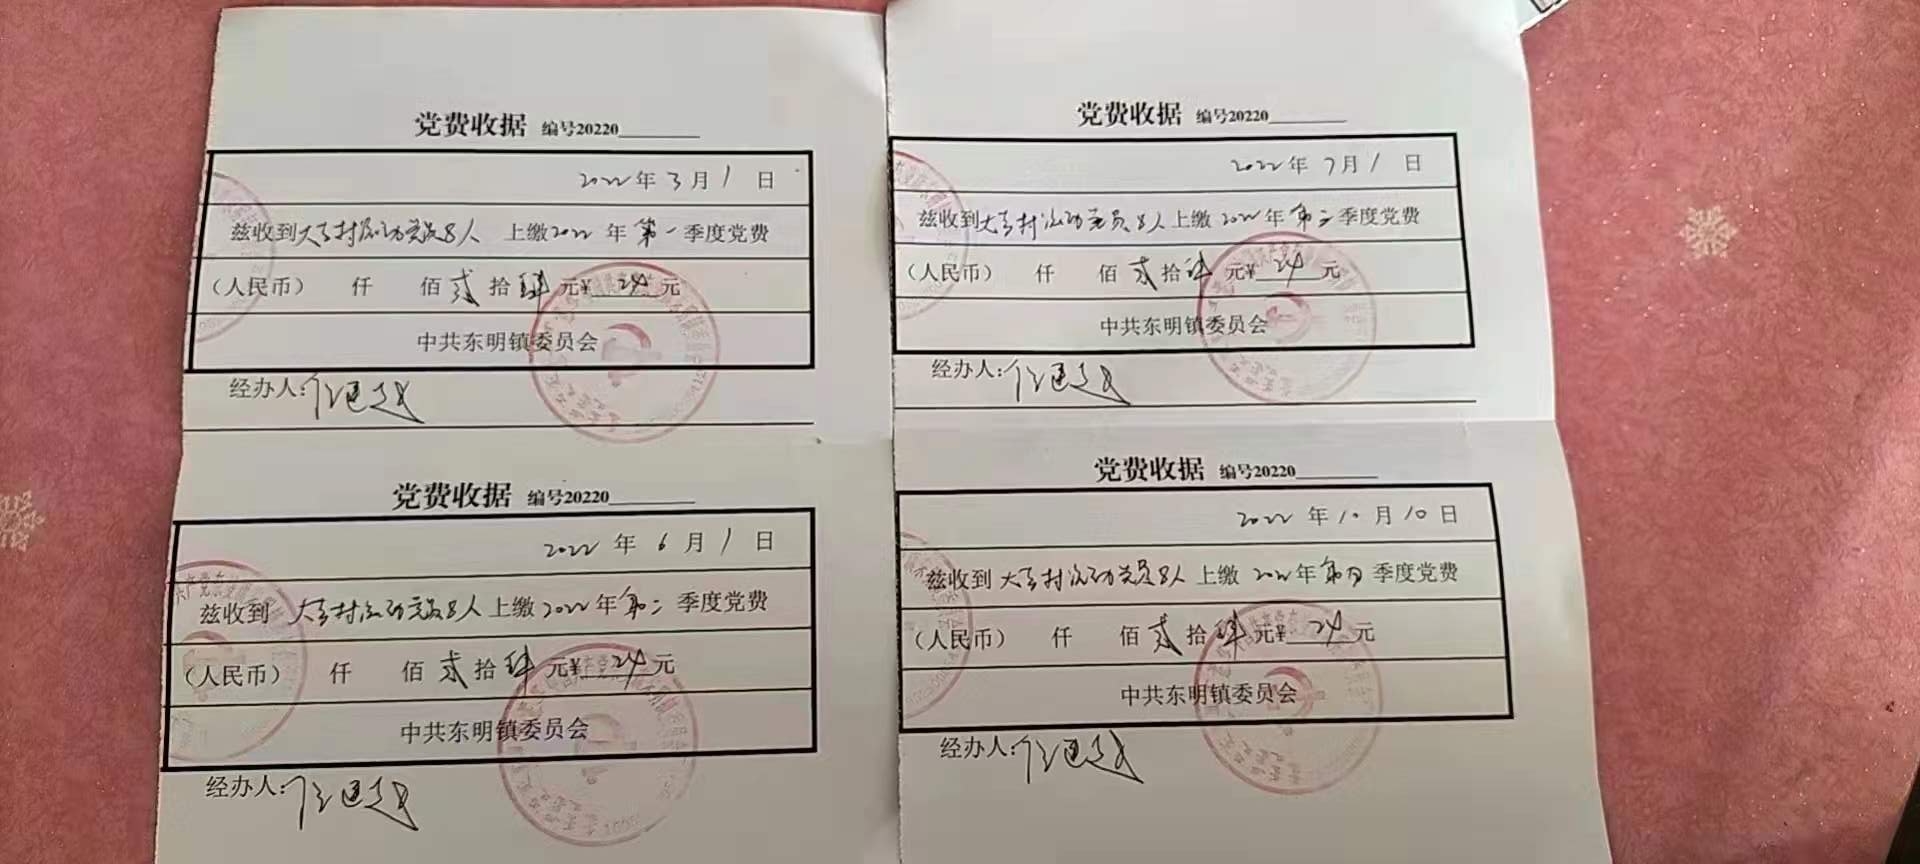 党费收据 编号20220
2022年3月1日
兹收到大官村流动党员8人 上缴2022年第一季度党费
(人民币) 仟 佰贰拾肆元¥24元
中共东明镇委员会
经办人:
党费收据 编号20220
2022年6月1日
兹收到 大官村流动党员8人上缴2022年第二季度党费
(人民币) 仟 佰贰拾肆元¥24元
中共东明镇委员会
经办人:
党费收据 编号20220
2022年7月1日
兹收到大官村流动党员8人上缴2022年第三季度党费
(人民币) 仟 佰贰拾肆元¥24元
中共东明镇委员会
经办人:
党费收据 编号20220
2022年10月10日
兹收到大官村流动党员8人上缴2022年第四季度党费
(人民币) 仟 佰贰拾肆元¥24元
中共东明镇委员会
经办人: